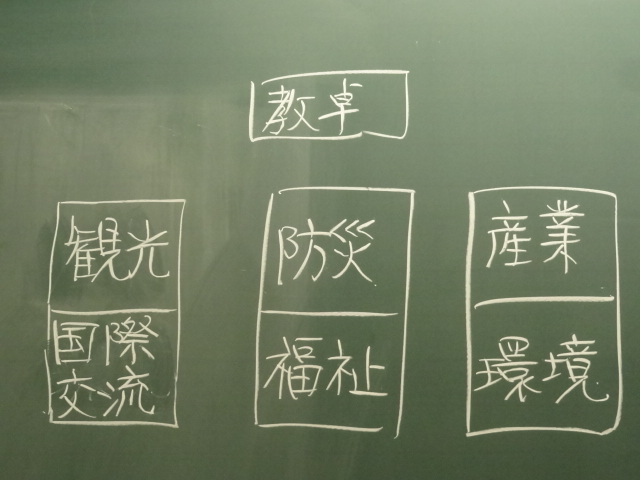 教卓
観光
防災
産業
国際
交流
福祉
環境